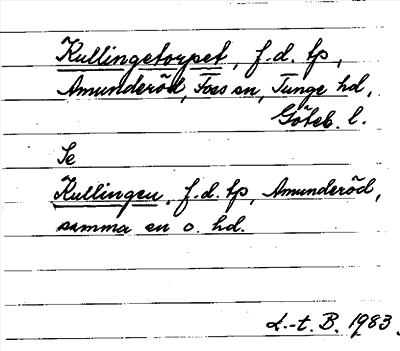 Kullingetorpet, f.d. tp,
Amunderöd, Foss sn, Tunge hd,
Göteb. l.
Se
Kullingen, f.d. tp, Amunderöd,
samma sn o. hd.
d.-t. B. 1983.